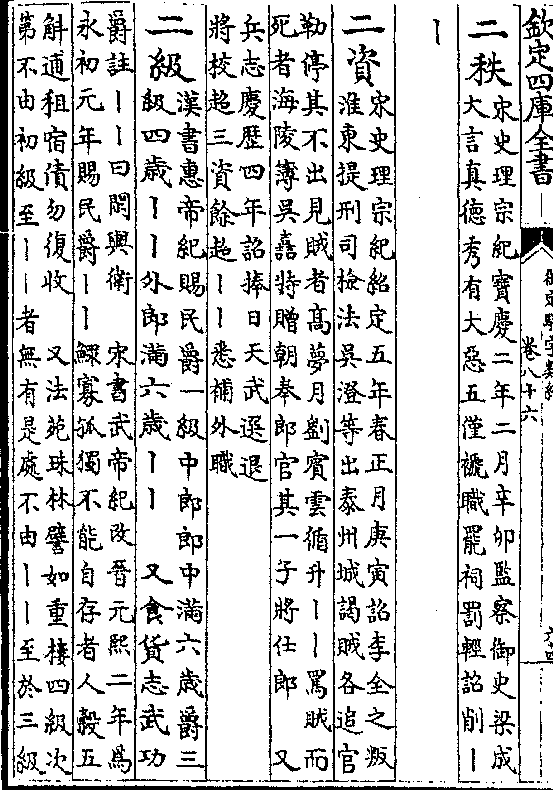 欽定四庫全書
卷八十六
二秩
宋史理宗紀寶慶二年二月辛卯監察御史梁成
大言真德秀有大惡五僅褫職罷祠罰輕詔削丨
丨
二資
宋史理宗紀紹定五年春正月庚寅詔李全之叛
淮東提刑司檢法吳澄等出泰州城謁賊各追官
勒停其不出見賊者高夢月劉賓雲循升丨丨罵賊而
死者海陵簿吳嚞特贈朝奉郎官其一子將仕郎 又
兵志慶歷四年詔捧日天武選退
將校超三資餘超丨丨悉補外職
二級
漢書惠帝紀賜民爵一級中郎郎中滿六歲爵三
級四歲丨丨外郎滿六歲丨丨 又食貨志武功
爵註丨丨曰閑輿衛 宋書武帝紀改晉元熙二年爲
永初元年賜民爵丨丨鰥寡孤獨不能自存者人穀五
斛逋租宿債勿復收 又法苑珠林譬如重樓四級次
第不由初級至丨丨者無有是處不由丨丨至於三級